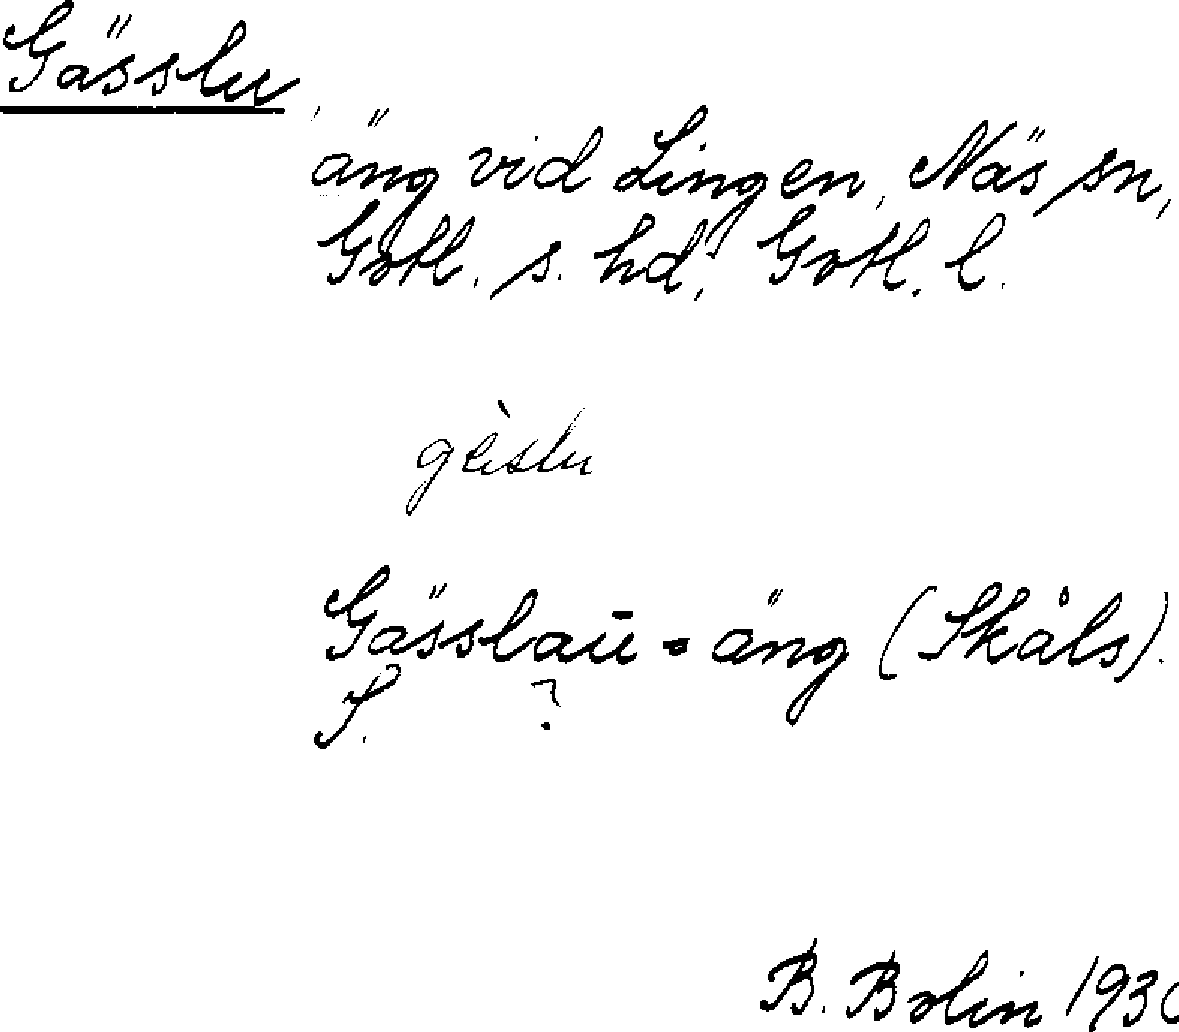 Gässlu,
äng vid Lingen, Näs sn,
Gotl. s. hd, Gotl. l.
gèislu
Gässlaū = äng (Skåls).
S. ?
B. Bolin